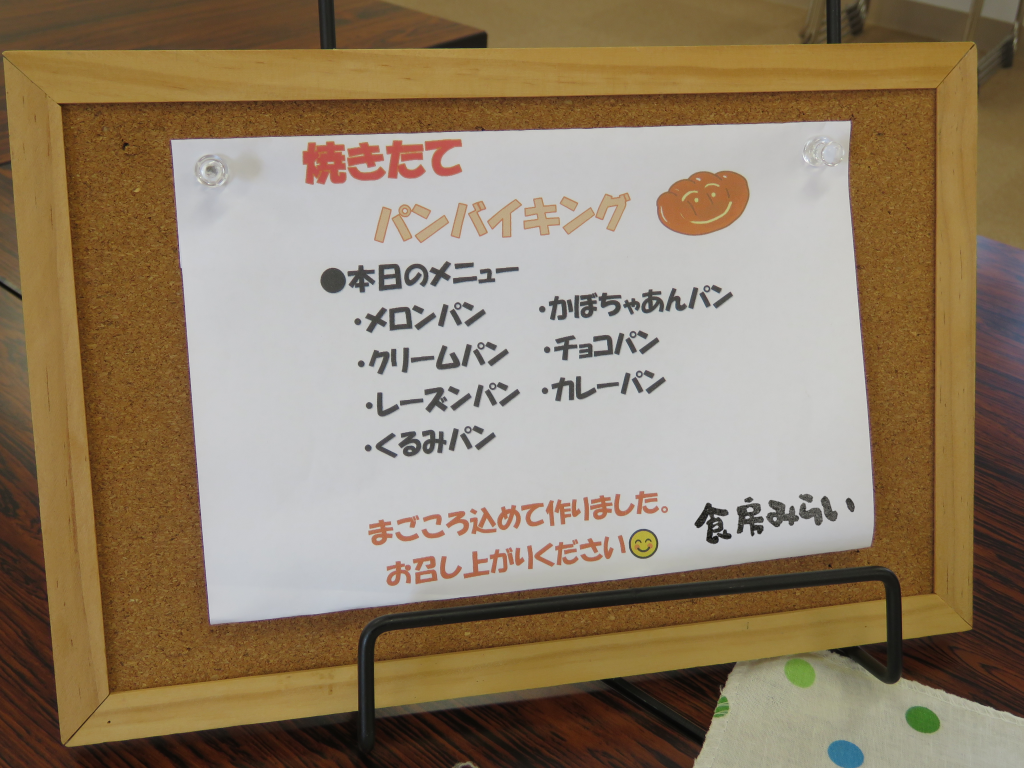 焼きたて
パンバイキング
●本日のメニュー
・メロンパン ・かぼちゃあんパン
・クリームパン ・チョコパン
・レーズンパン ・カレーパン
・くるみパン
まごころ込めて作りました。
お召し上がりください😊
食房みらい